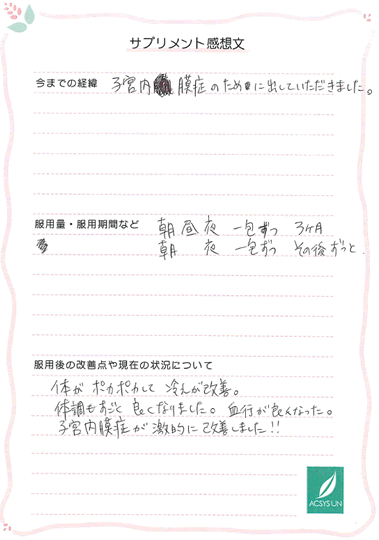 サプリメント感想文
今までの経緯 子宮内膜症のために出していただきました。
服用量・服用期間など 朝昼夜 一包ずつ 3ヶ月
朝 夜 一包ずつ その後ずっと.
服用後の改善点や現在の状況について
体がポカポカして 冷えが改善。
体調もすごく良くなりました。血行が良くなった。
子宮内膜症が激的に改善しました!!
ACSYSUN